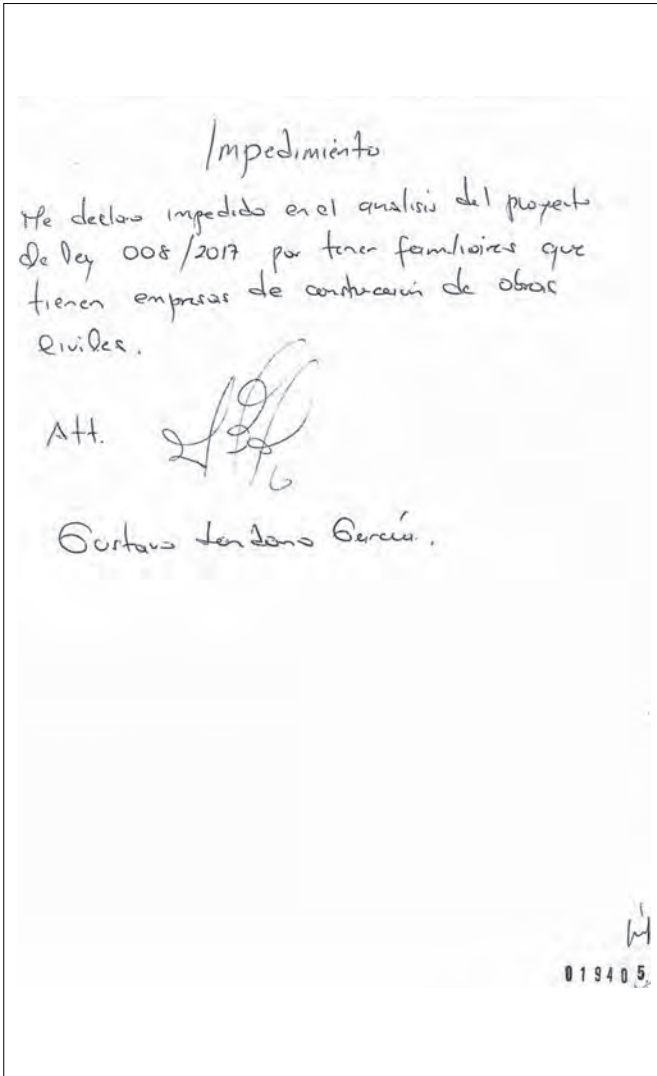 Impedimiento
Me declaro impedido en el analisis del proyecto
de ley 008/2017 por tener familiares que
tienen empresas de construcción de obras
civiles.
Att.
Gustavo Londoño García.
019405